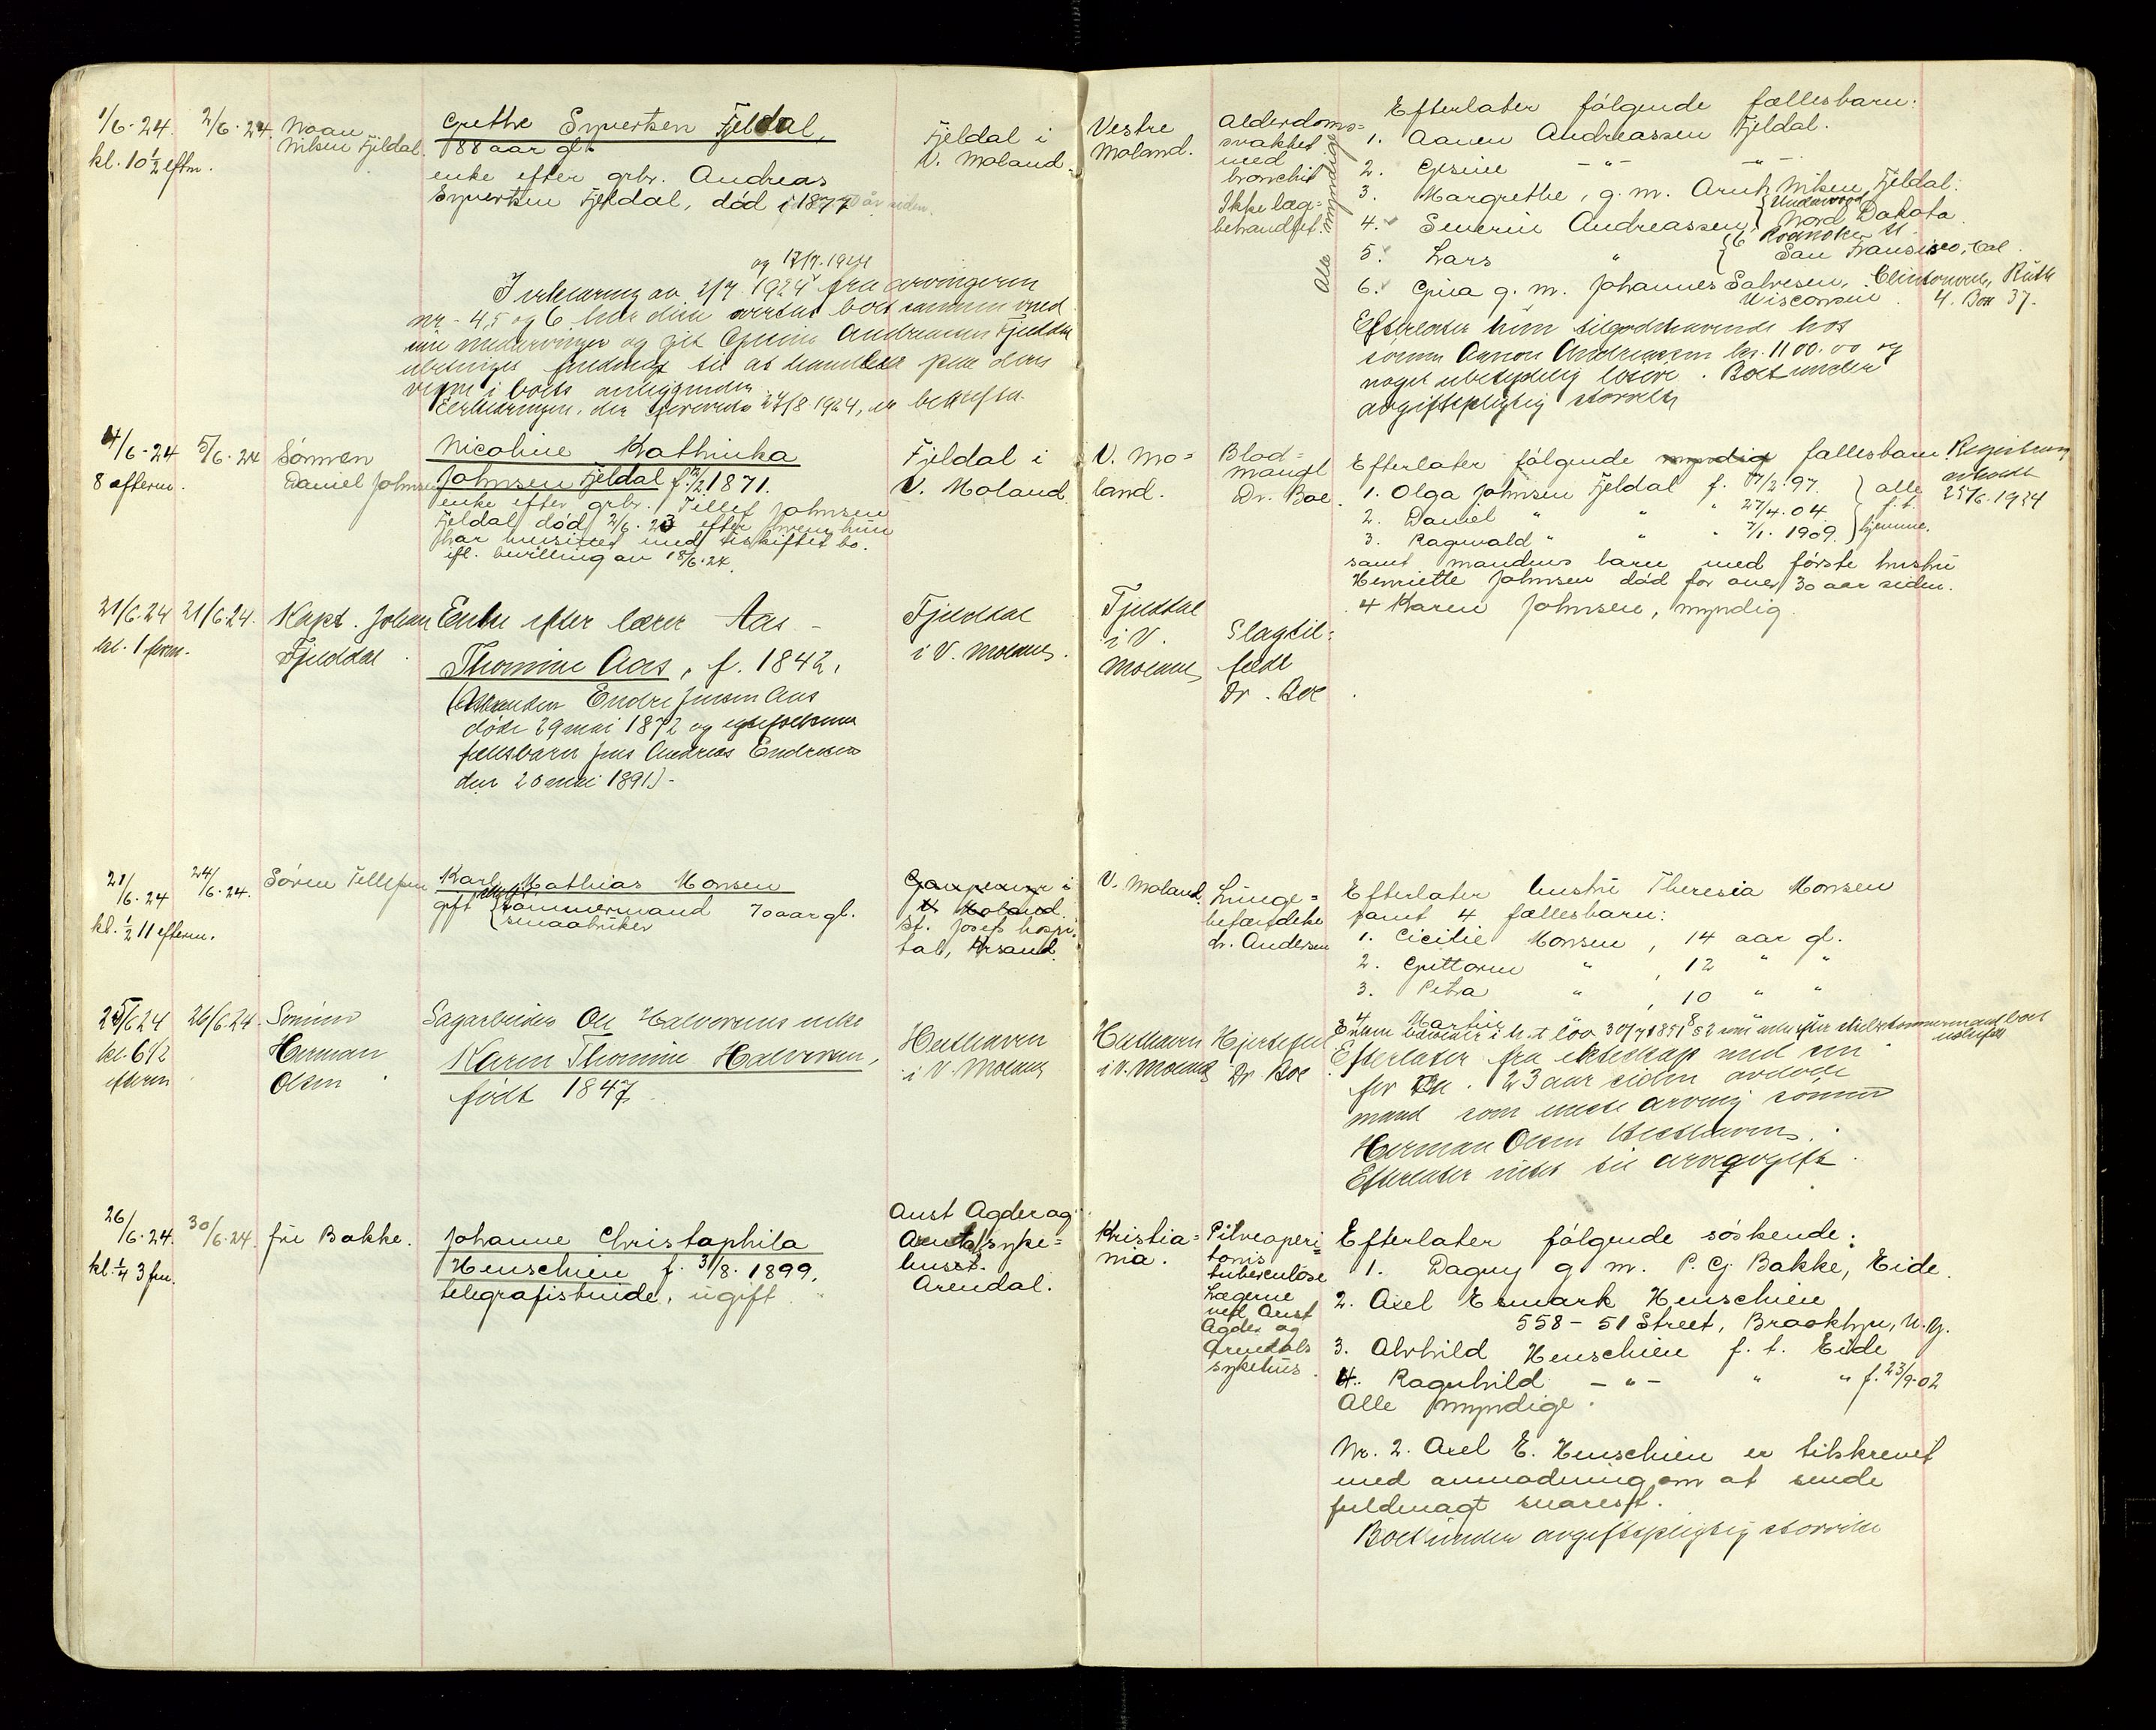 1/6-24.
kl. 10 1/2 eftm.
2/6-24.
Niken Fjeldal.
Grethe Syvertsen Fjeldal,
88 aar gl.
enke efter grbr. Andreas
Syvertsen Fjeldal, død i 1877
Fjeldal i
V. Moland.
Vestre
Moland.
Alderdoms-
svakhet
med
bronchit
Ikke læg-
behandlet.
Alle myndige
Efterlater følgende fællesbarn:
1. Aanen Andreassen Fjeldal.
2. Gusine -"- -"-
3. Margrethe, g. m. Arnt Niksen Fjeldal.
4. Severin Andreassen { Underwood Nord Dakota
5. Lars " { 6 Roanoke St San Fransisco, Cal.
6. Gina g. m. Johannes Salvesen, Clintonville, Rute
Wisconsin 4. Box 37.
Efterlater hun tilgodehavende hos
sønnen Aanon Andreassen kr. 1100.00 og
noget ubetydelig løsøre. Boet under
avgiftspligtig størrelse
og 17/7.1924
I erklæring av 2/7 1924 fra arvingerne
nr. 4, 5 og 6 har disse overtat boet sammen med
sine medarvinger og git Andreassen Fjeldal
ubetinget fuldmagt til at handle paa deres
vegne i boets anliggender.
Erklæringen, der 27/8 1924, er bekræftet.
4/6-24
8 efterm.
5/6-24
Sønnen
Daniel Johnsen
Nicoline Kathinka
Johnsen Fjeldal f. 1871.
enke efter grbr. Tellef Johnsen
Fjeldal død 2/6-23 efter hvem hun
har hensittet med uskiftet bo.
ifl. bevilling av 18/6-24.
Fjeldal i
V. Moland.
V. Mo-
land.
Blod-
mangel
Dr. Boe
Efterlater følgende fællesbarn
1. Olga Johnsen Fjeldal f. 17/2-97. } alle
2. Daniel " " " 27/4-04 } f.t.
3. Ragnvald " " " 7/1-1909. } hjemme.
samt mandens barn med første hustru
Henriette Johnsen død for over 30 aar siden.
4 Karen Johnsen, myndig.
Registrering
avholdt
25/6.1924
21/6.24
kl. 1 form.
21/6.24.
Kapt. Johan
Fjeldal
Enke efter lærer Aas -
Thomine Aas, f. 1842,
(Manden Endre Jensen Aas
døde 29 mai 1872 og egtefolkenes
fællesbarn Jens Andreas Endresen
den 20 mai 1891) -
Fjeldal
i V. Moland.
Fjeldal
i V.
Moland
Slagtil-
fælde
Dr. Boe
21/6-24
kl. 1/2 11 efterm.
24/6-24.
Søren Tellefsen
Karl Mathias Monsen
gift { tømmermand 70 aar gl.
smaabruker
V. Moland
St. Josefs hospi-
tal, Krsand.
V. Moland.
Lunge-
betændelse
dr. Andersen
Efterlater hustru Theresia Monsen
samt 4 fællesbarn:
1. Cicilie Monsen, 14 aar gl.
2. Guttorm " , 12 " "
3. Petra " , 10 " "
4. Martin 8
25/6 24
kl. 6 1/2
efterm
26/6-24.
Sønnen
Herman
Olsen
Sagarbeider Ole Halvorsens enke
Karen Thomine Halvorsen,
født 1847.
Hesthaven
i V. Moland
Hesthaven
i V. Moland
Hjertefeil
Dr Boe
Efterlater fra ekteskap med sin
for 23 aar siden avdøde
mand som eneste arving sønnen
Herman Olsen Hesthaven.
Efterlater intet til arveavgift.
26/6-24.
kl. 1/4 3 fm.
30/6-24.
fru Bakke.
Johanne Christophila
Henschien f. 31/8-1899,
telegrafistinde, ugift
Aust Agder og
Arendal syke-
huset.
Arendal.
Kristia-
nia.
tuberculose
Lægerne
ved Aust
Agder og
Arendals
sykehus.
Efterlater følgende søskende:
1. Dagny g. m. P. G. Bakke, Eide.
2. Axel Esmark Henschien
558 - 51 Street, Brooklyn, N.Y.
3. Alvhild Henschien f. t. Eide
4. Ragnhild -"- " " f. 23/9-02
Alle myndige.
Nr. 2. Axel E. Henschien er tilskrevet
med anmodning om at sende
fuldmagt snarest.
Boet under avgiftspligtig størrelse